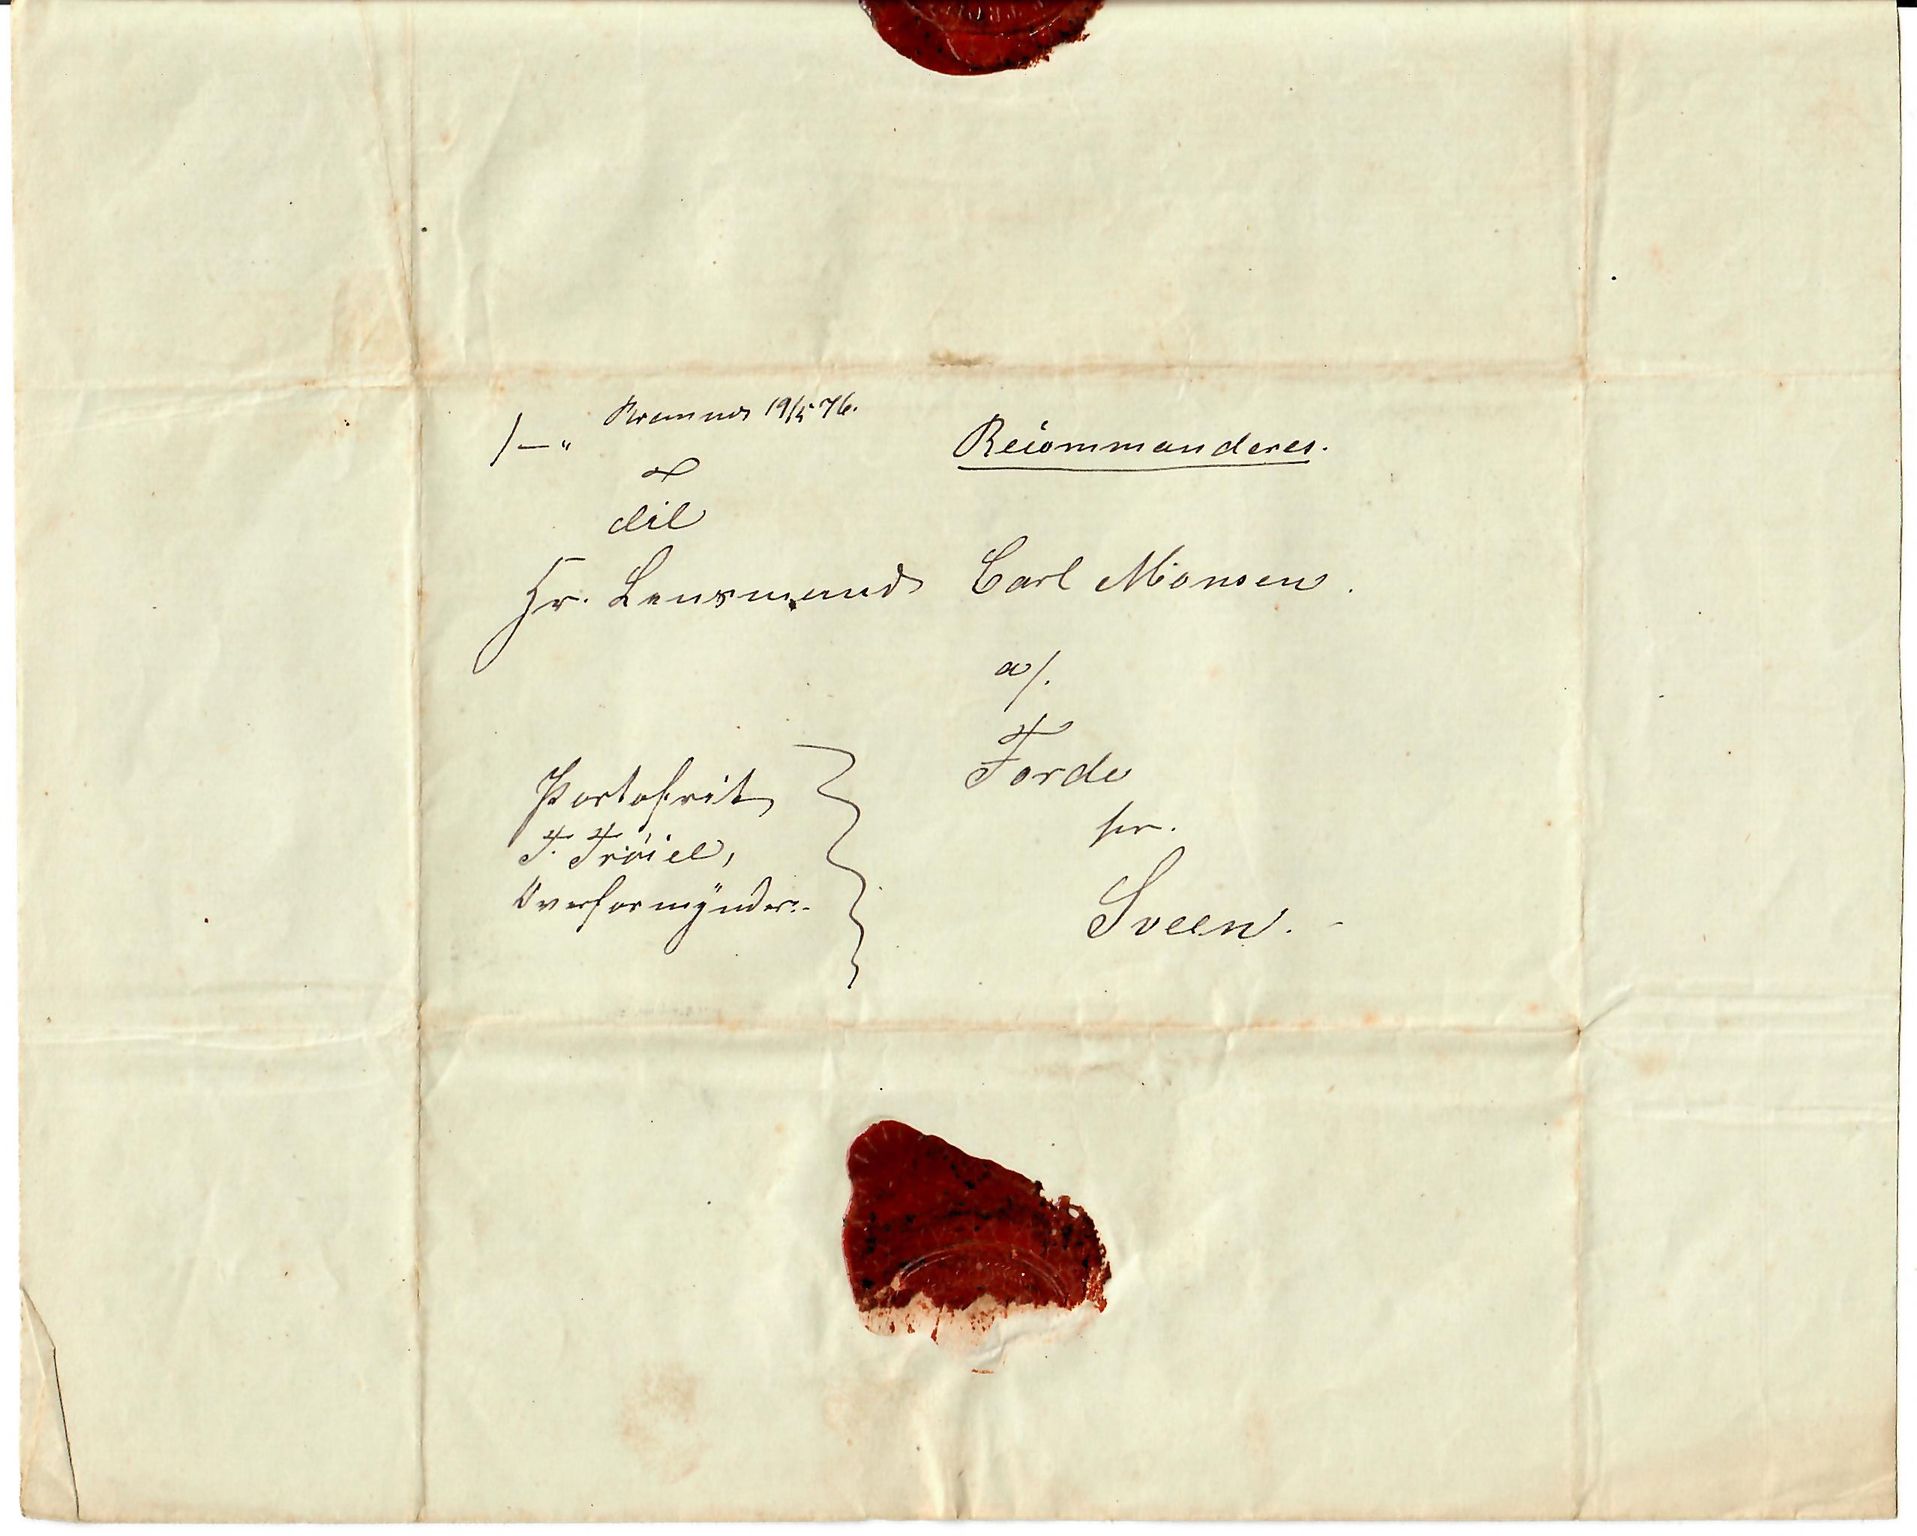 19/5 76.
Recommanderes.
til
Hr. Lensmand Carl Monsen.
a/.
Förde
pr.
Sveen.
Portofrit
F. Tröiel,
Overformynder.